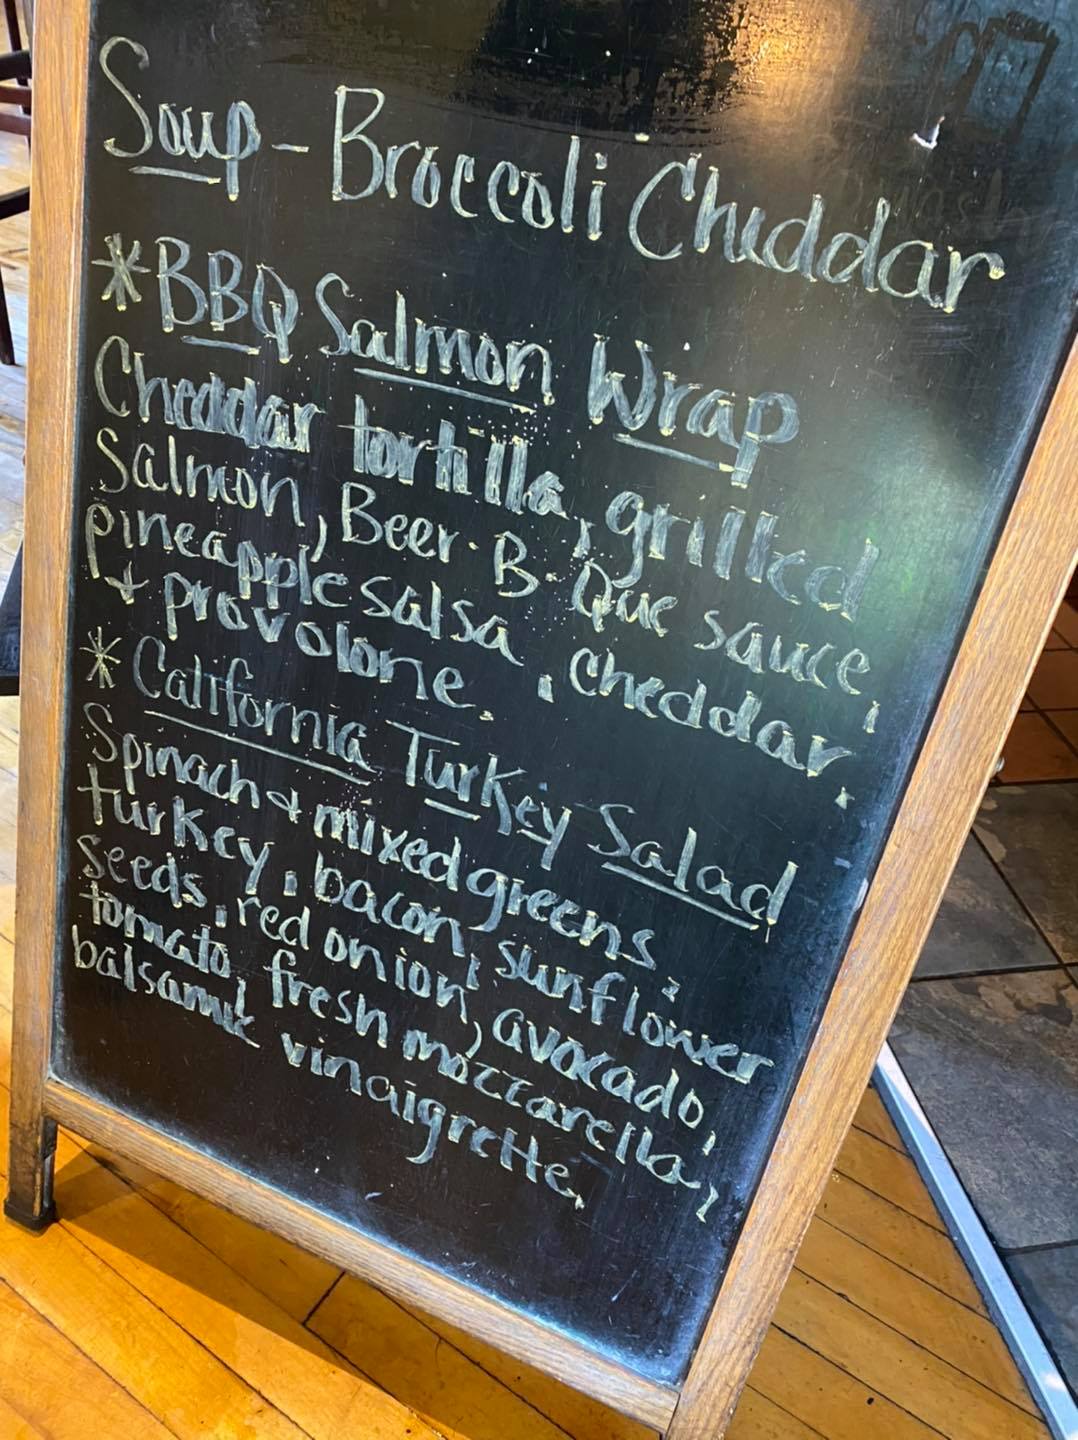 Soup - Broccoli Cheddar
* BBQ Salmon Wrap
Cheddar tortilla, grilled
Salmon, Beer·B·Que sauce,
pineapple salsa, cheddar,
+ provolone.
* California Turkey Salad
Spinach + mixed greens,
turkey, bacon, sunflower
seeds, red onion, avocado,
tomato, fresh mozzarella,
balsamic vinaigrette.